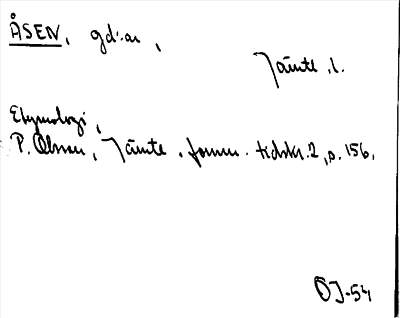 ÅSEN, gd:ar,
Jämtl.l.
Etymologi,
P. Olsson, Jämtl. fornm. tidskr. 2, s. 156.
ÖJ-54